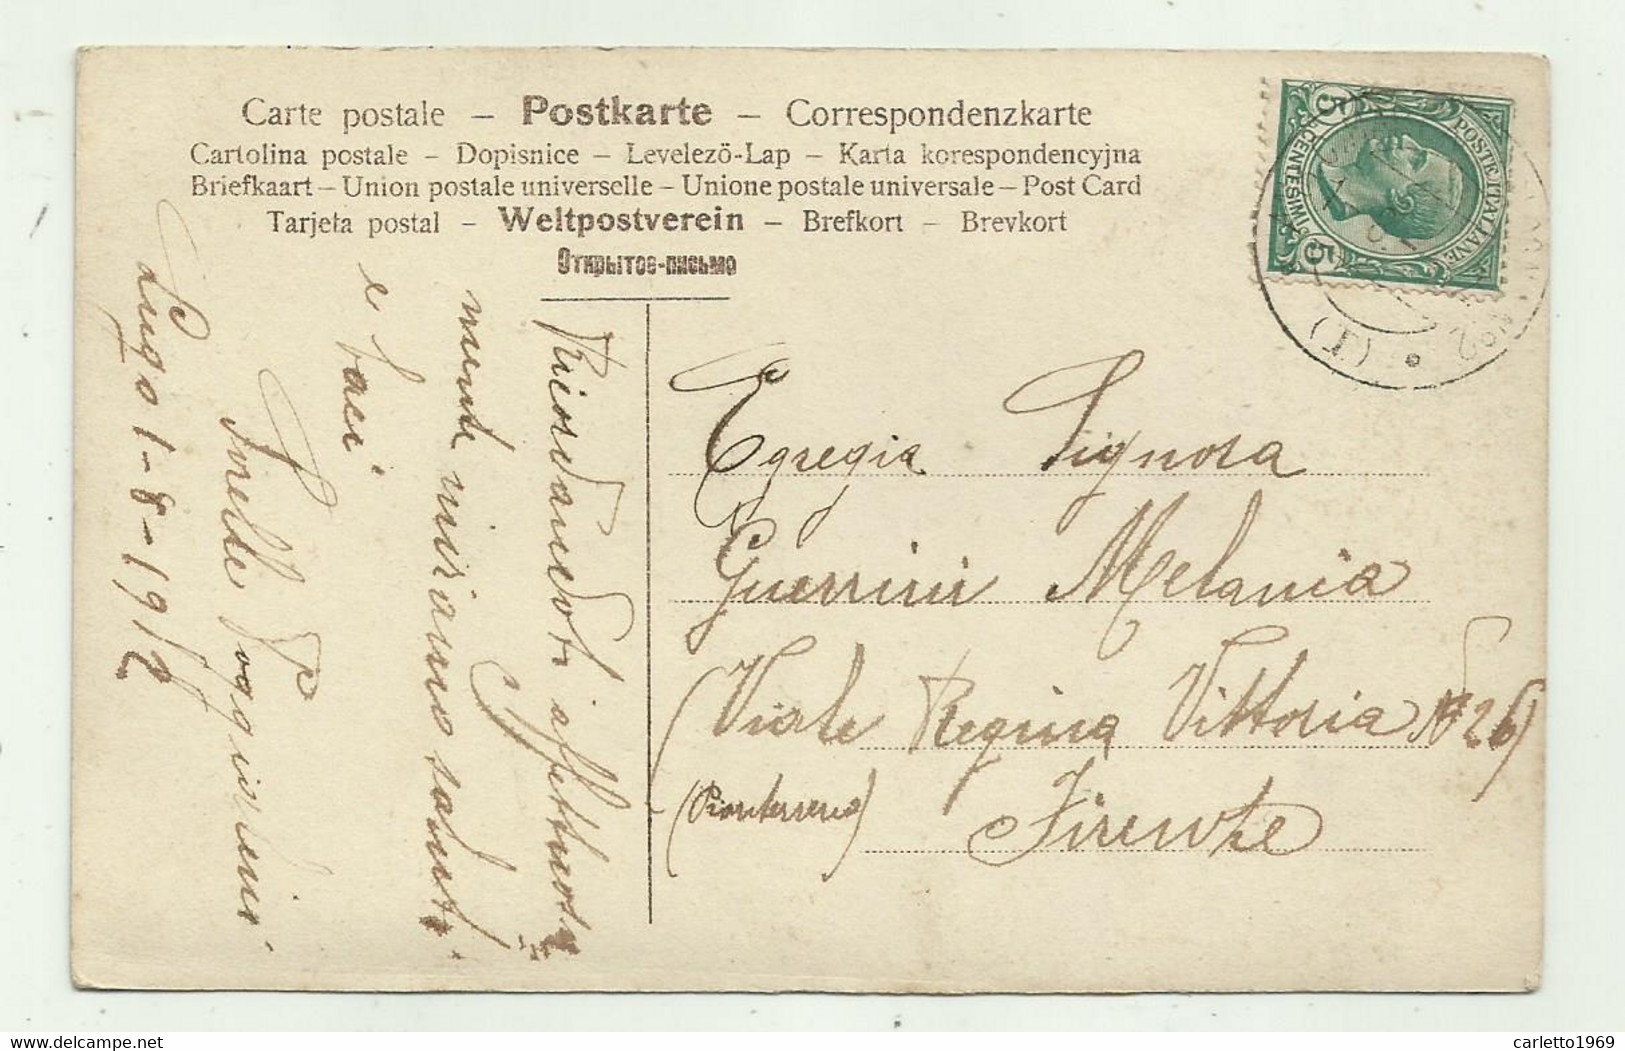 Carte postale – Postkarte – Correspondenzkarte
Cartolina postale – Dopisnice – Levelező-Lap – Karta korespondencyjna
Briefkaart – Union postale universelle – Unione postale universale – Post Card
Tarjeta postal – Weltpostverein – Brefkort – Brevkort
Открытое-письмо
POSTE ITALIANE
5 CENTESIMI 5
Nº2
(1)
Ricordandoti affettuosa
mente inviamo saluti
e baci
Sorelle Poggiolini
Lugo 1-8-1912
Egregia Signora
Guerrini Melania
(Viale Regina Vittoria Nº 26)
(Pianterreno)
Firenze
www.delcampe.net
carletto1969